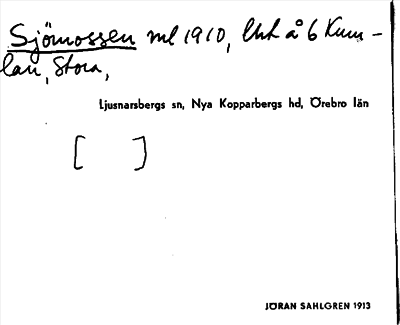 Sjömossen ml 1910, Uht å 6 Kum-
lan, Stora,
Ljusnarsbergs sn, Nya Kopparbergs hd, Örebro län
[ ]
JÖRAN SAHLGREN 1913